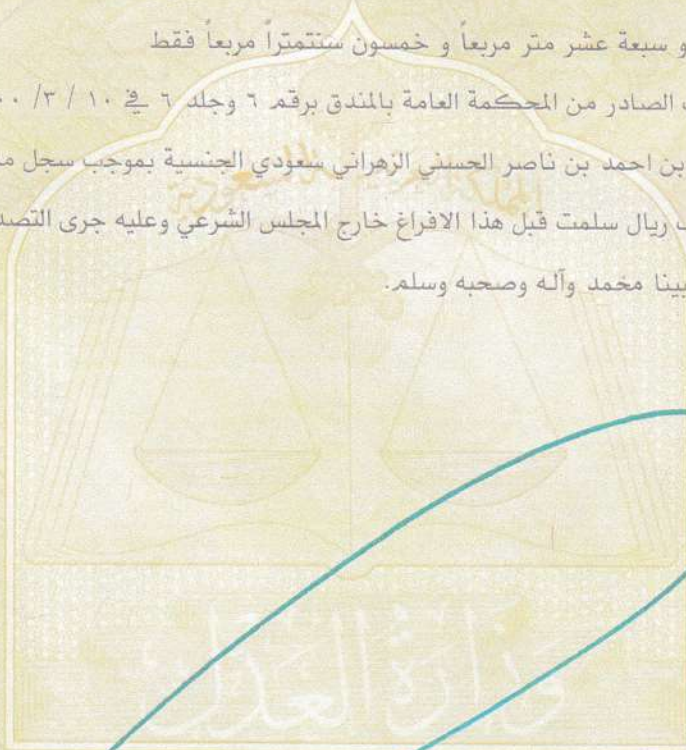 و سبعة عشر متر مربعاً و خمسون سنتمتراً مربعاً فقط
الصادر من المحكمة العامة بالمندق برقم ٦ وجلد ٦ في ١٠ / ٣ /
بن احمد بن ناصر الحسني الزهراني سعودي الجنسية بموجب سجل
ريال سلمت قبل هذا الافراغ خارج المجلس الشرعي وعليه جرى
محمد وآله وصحبه وسلم.
المملكة العربية السعودية
وزارة العدل